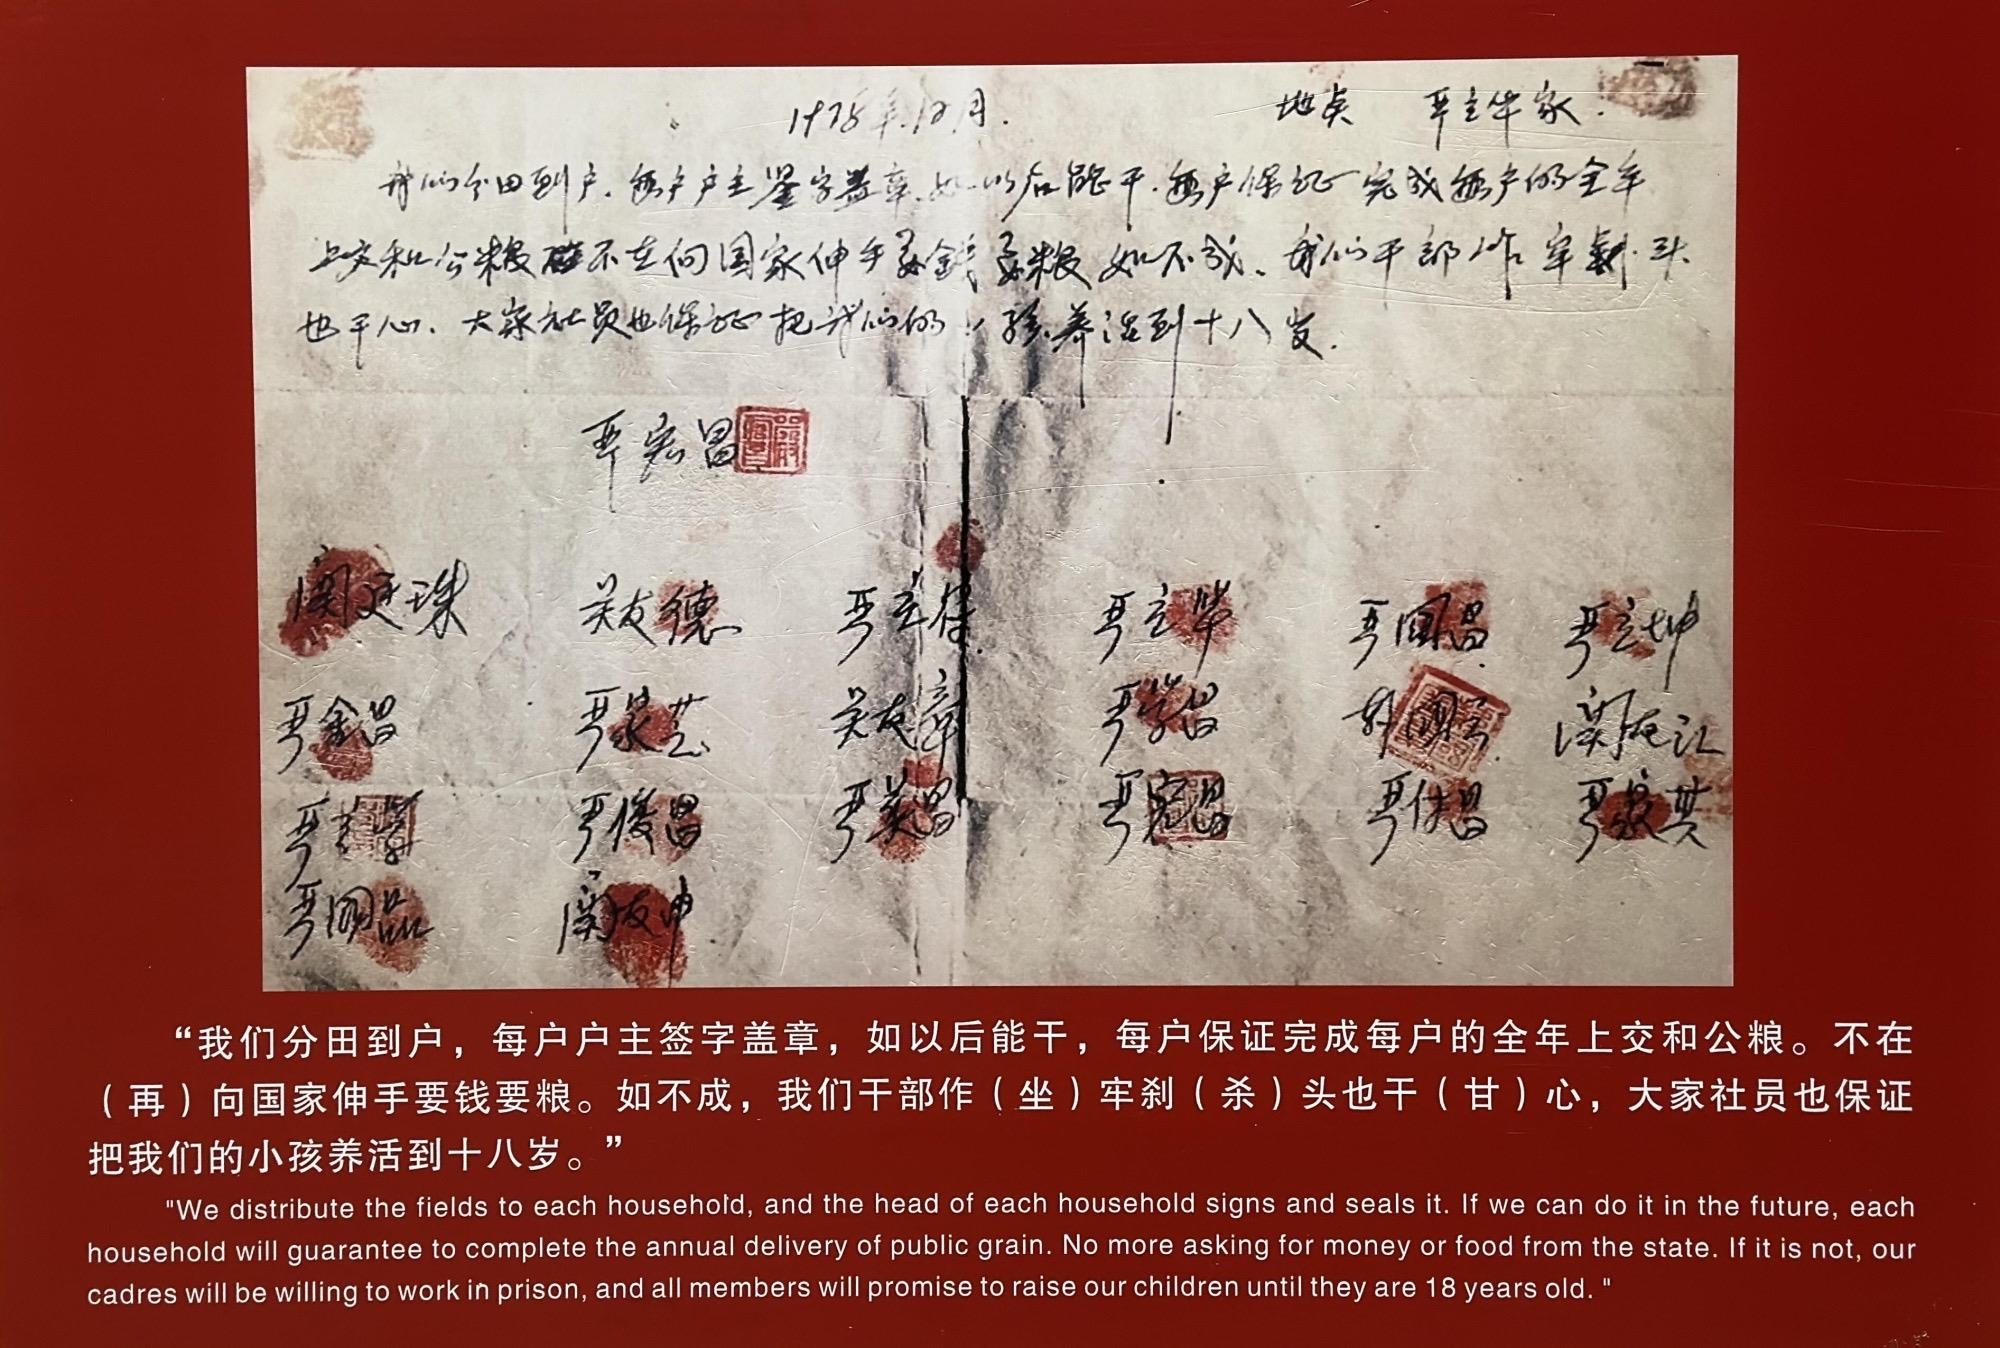 1978年.12月. 地点 严立华家.
我们分田到户.每户户主签字盖章.如以后能干.每户保证完成每户的全年
上交和公粮不在向国家伸手要钱要粮如不成.我们干部作牢刹头
也干心.大家社员也保证把我们的小孩养活到十八岁.
严宏昌
关廷珠 关友德 严立符 严立华 严国昌 严立坤
严金昌 严家芝 关友章 严学昌 韩国云 关友江
严立学 严俊昌 严美昌 严宏昌 严付昌 严家其
严国品 关友申
“我们分田到户，每户户主签字盖章，如以后能干，每户保证完成每户的全年上交和公粮。不在
（再）向国家伸手要钱要粮。如不成，我们干部作（坐）牢刹（杀）头也干（甘）心，大家社员也保证
把我们的小孩养活到十八岁。”
"We distribute the fields to each household, and the head of each household signs and seals it. If we can do it in the future, each
household will guarantee to complete the annual delivery of public grain. No more asking for money or food from the state. If it is not, our
cadres will be willing to work in prison, and all members will promise to raise our children until they are 18 years old. "